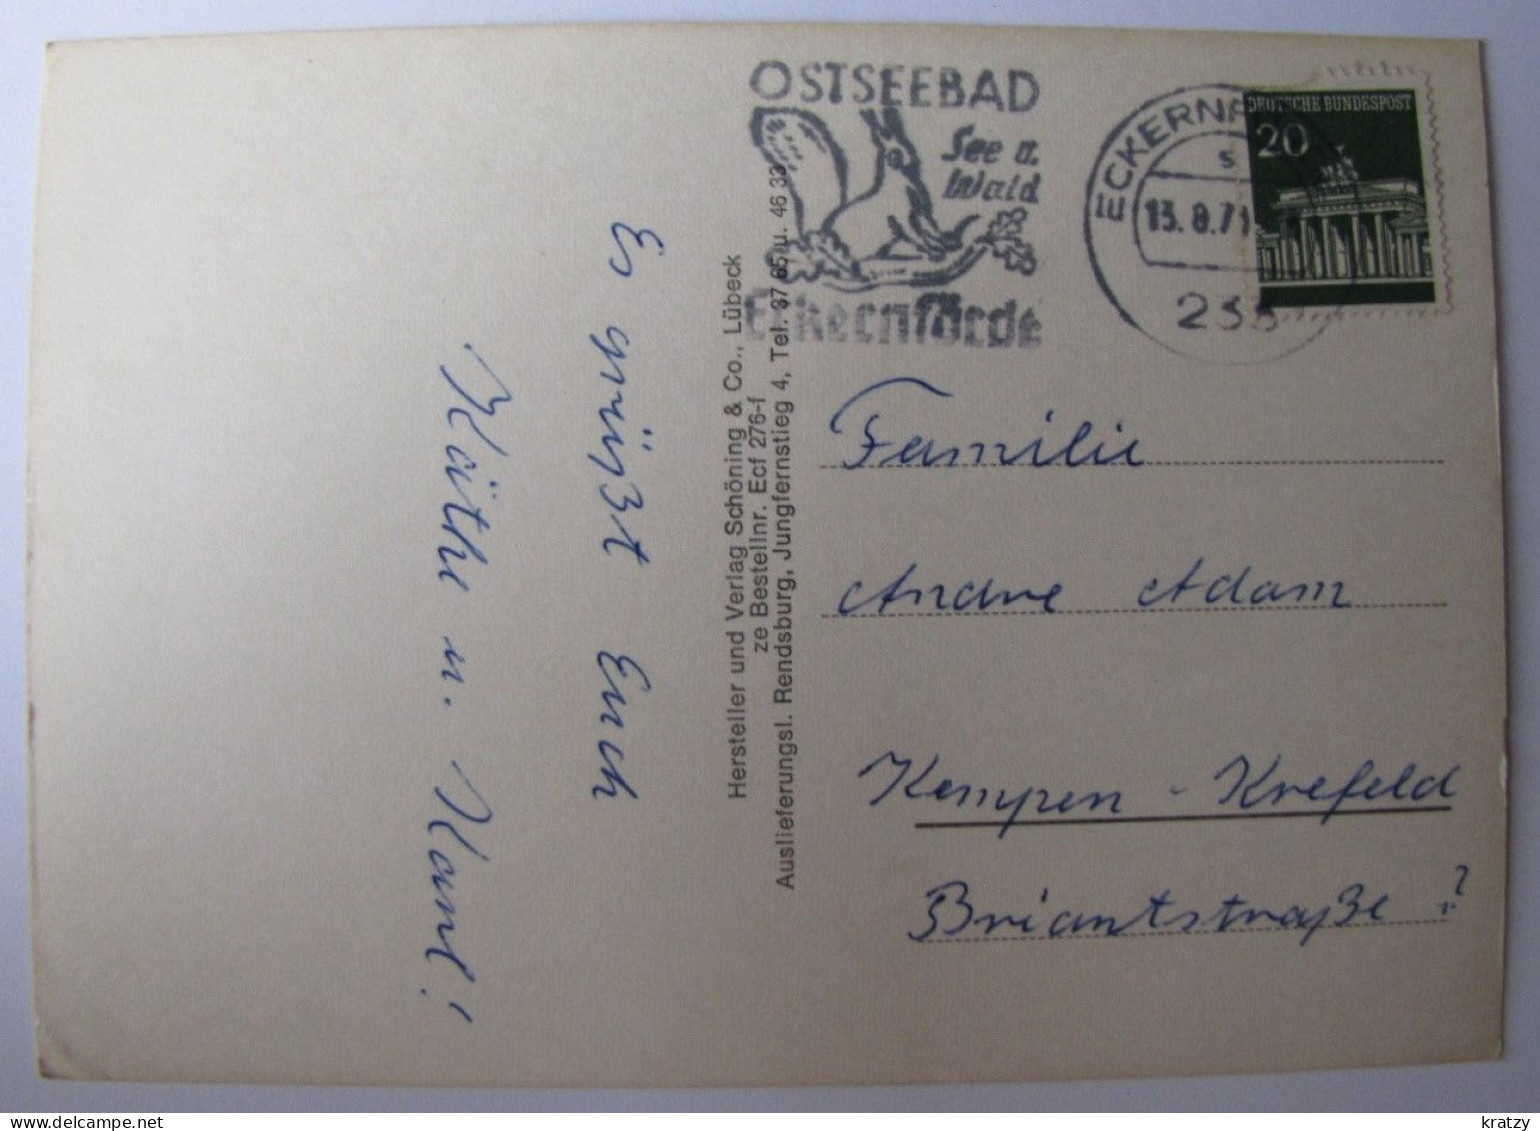 OSTSEEBAD
See u.
Wald
Eckernförde
ECKERNF
s
13.8.71
233
DEUTSCHE BUNDESPOST
20
Es grüßt Euch
Käthe u. Karl!
Hersteller und Verlag Schöning & Co., Lübeck
ze Bestellnr. Ecf 276-f
Auslieferungsl. Rendsburg, Jungfernstieg 4, Tel. 37 65 u. 46 33
Familie
Andre Adam
Kempen - Krefeld
Briantstraße ?
kratzy